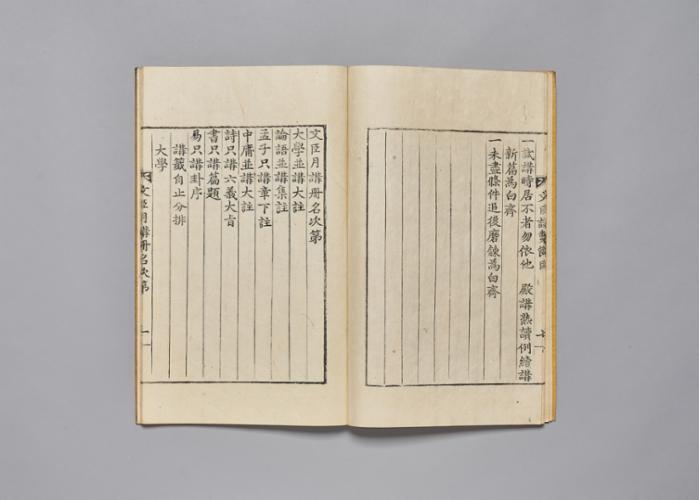 一試講時居不者勿依他　殿講熟讀例續講
新篇為白齊
一未盡條件追後磨鍊為白齊
文臣月講冊名次第
大學並講大註
論語並講集註
孟子只講章下註
中庸並講大註
詩只講六義大旨
書只講篇題
易只講卦序
講籤自止分排
大學
文臣月講冊名次第
一